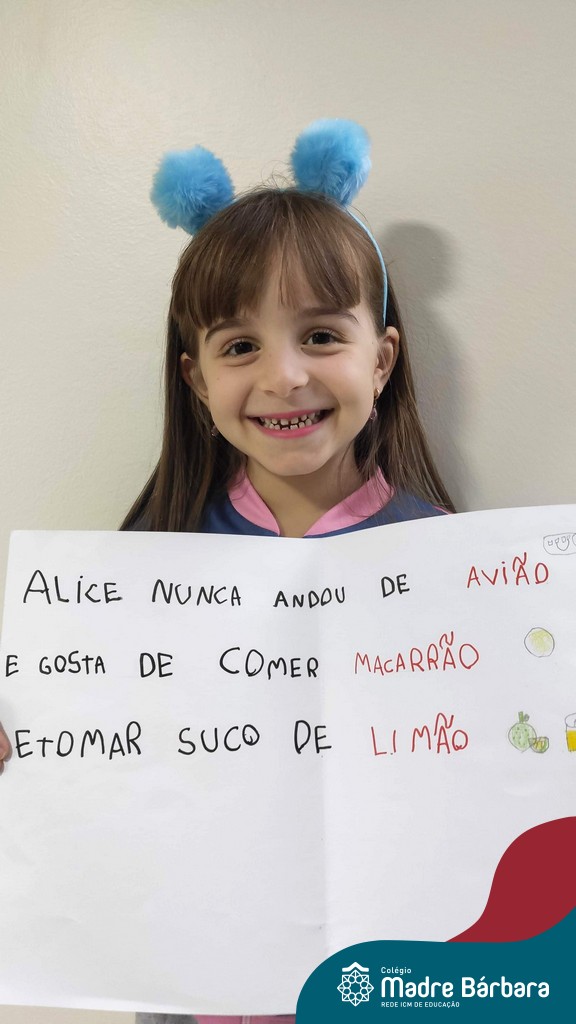 ALICE NUNCA ANDOU DE AVIÃO
E GOSTA DE COMER MACARRÃO
E TOMAR SUCO DE LIMÃO
Colégio
Madre Bárbara
REDE ICM DE EDUCAÇÃO